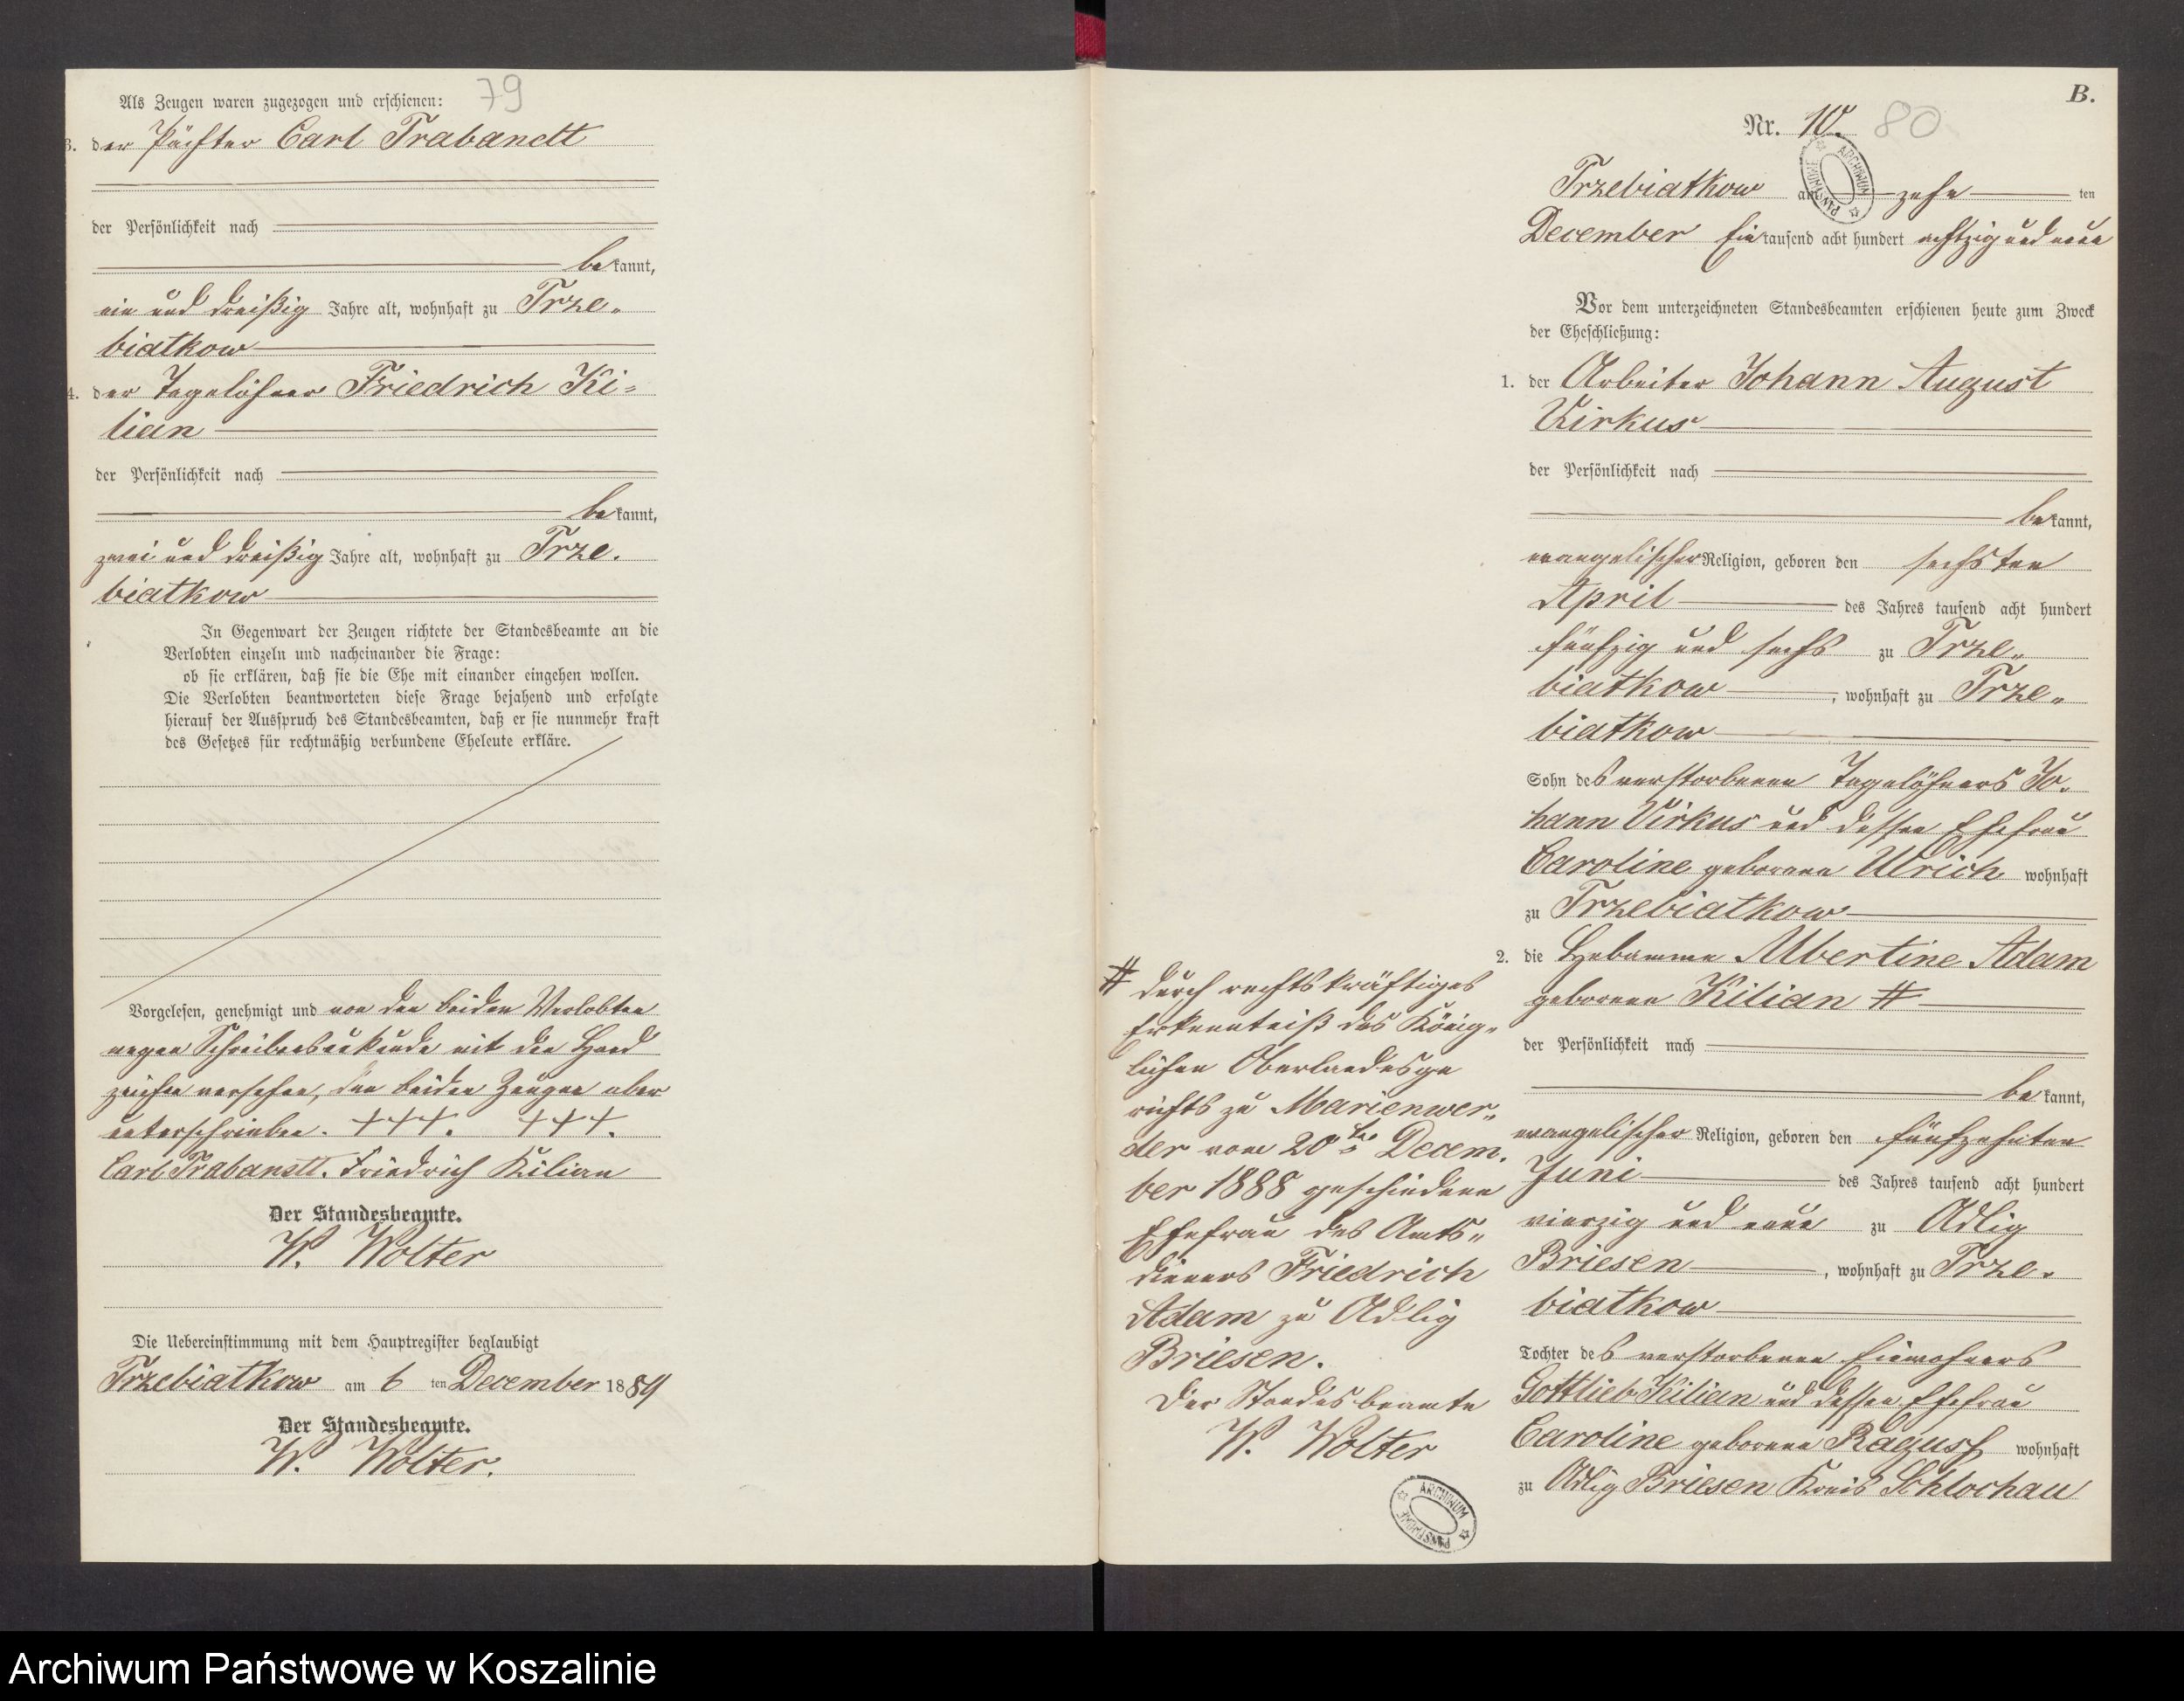 79
Als Zeugen waren zugezogen und erschienen:
3. der Pächter Carl Trabandt
der Persönlichkeit nach
bekannt,
ein und dreißig Jahre alt, wohnhaft zu Trze-
biatkow
4. der Tagelöhner Friedrich Ki-
lian
der Persönlichkeit nach
bekannt,
zwei und dreißig Jahre alt, wohnhaft zu Trze-
biatkow
In Gegenwart der Zeugen richtete der Standesbeamte an die
Verlobten einzeln und nacheinander die Frage:
ob sie erklären, daß sie die Ehe mit einander eingehen wollen.
Die Verlobten beantworteten diese Frage bejahend und erfolgte
hierauf der Ausspruch des Standesbeamten, daß er sie nunmehr kraft
des Gesetzes für rechtmäßig verbundene Eheleute erkläre.
Vorgelesen, genehmigt und von den beiden Verlobten
wegen Schreibensunkunde mit den Hand
zeichen versehen, den beiden Zeugen aber
unterschrieben. +++. +++.
Carl Trabandt. Friedrich Kilian
Der Standesbeamte.
W. Wolter
Die Uebereinstimmung mit dem Hauptregister beglaubigt
Trzebiatkow am 6 ten December 1889
Der Standesbeamte.
W. Wolter.
B.
Nr. 10. 80
Trzebiatkow am zehn ten
December Eintausend acht hundert achtzig und neun
Vor dem unterzeichneten Standesbeamten erschienen heute zum Zweck
der Eheschließung:
1. der Arbeiter Johann August
Virkus
der Persönlichkeit nach
bekannt,
evangelischer Religion, geboren den sechsten
April des Jahres tausend acht hundert
fünfzig und sechs zu Trze-
biatkow, wohnhaft zu Trze-
biatkow
Sohn des verstorbenen Tagelöhners Jo-
hann Virkus und dessen Ehefrau
Caroline geborene Ulrich wohnhaft
zu Trzebiatkow
2. die Hebamme Albertine Adam
geborene Kilian #
der Persönlichkeit nach
bekannt,
evangelischer Religion, geboren den fünfzehnten
Juni des Jahres tausend acht hundert
vierzig und neun zu Adlig
Briesen, wohnhaft zu Trze-
biatkow
Tochter des verstorbenen Einwohners
Gottlieb Kilian und dessen Ehefrau
Caroline geborene Ragusch wohnhaft
zu Adlig Briesen Kreis Schlochau
# durch rechtskräftiges
Erkenntniß des König-
lichen Oberlandesge
richts zu Marienwer-
der vom 20ten Decem-
ber 1888 geschiedene
Ehefrau des Amts-
dieners Friedrich
Adam zu Adlig
Briesen.
Der Standesbeamte
W. Wolter
ARCHIWUM PAŃSTWOWE
ARCHIWUM PAŃSTWOWE
Archiwum Państwowe w Koszalinie